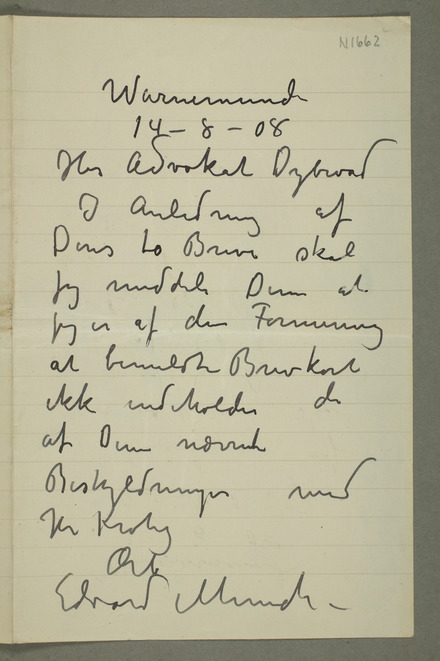 N1662
Warnemünde
14 – 8 – 08
Hr Advokat Dybwad
I Anledning af
Deres to Breve skal
jeg meddele Dem at
jeg er af den Formening
at bemeldte Brevkort
ikke indeholder de
af Dem nævnte
Beskyldninger mod
Hr Krohg
Ærb
Edvard Munch –